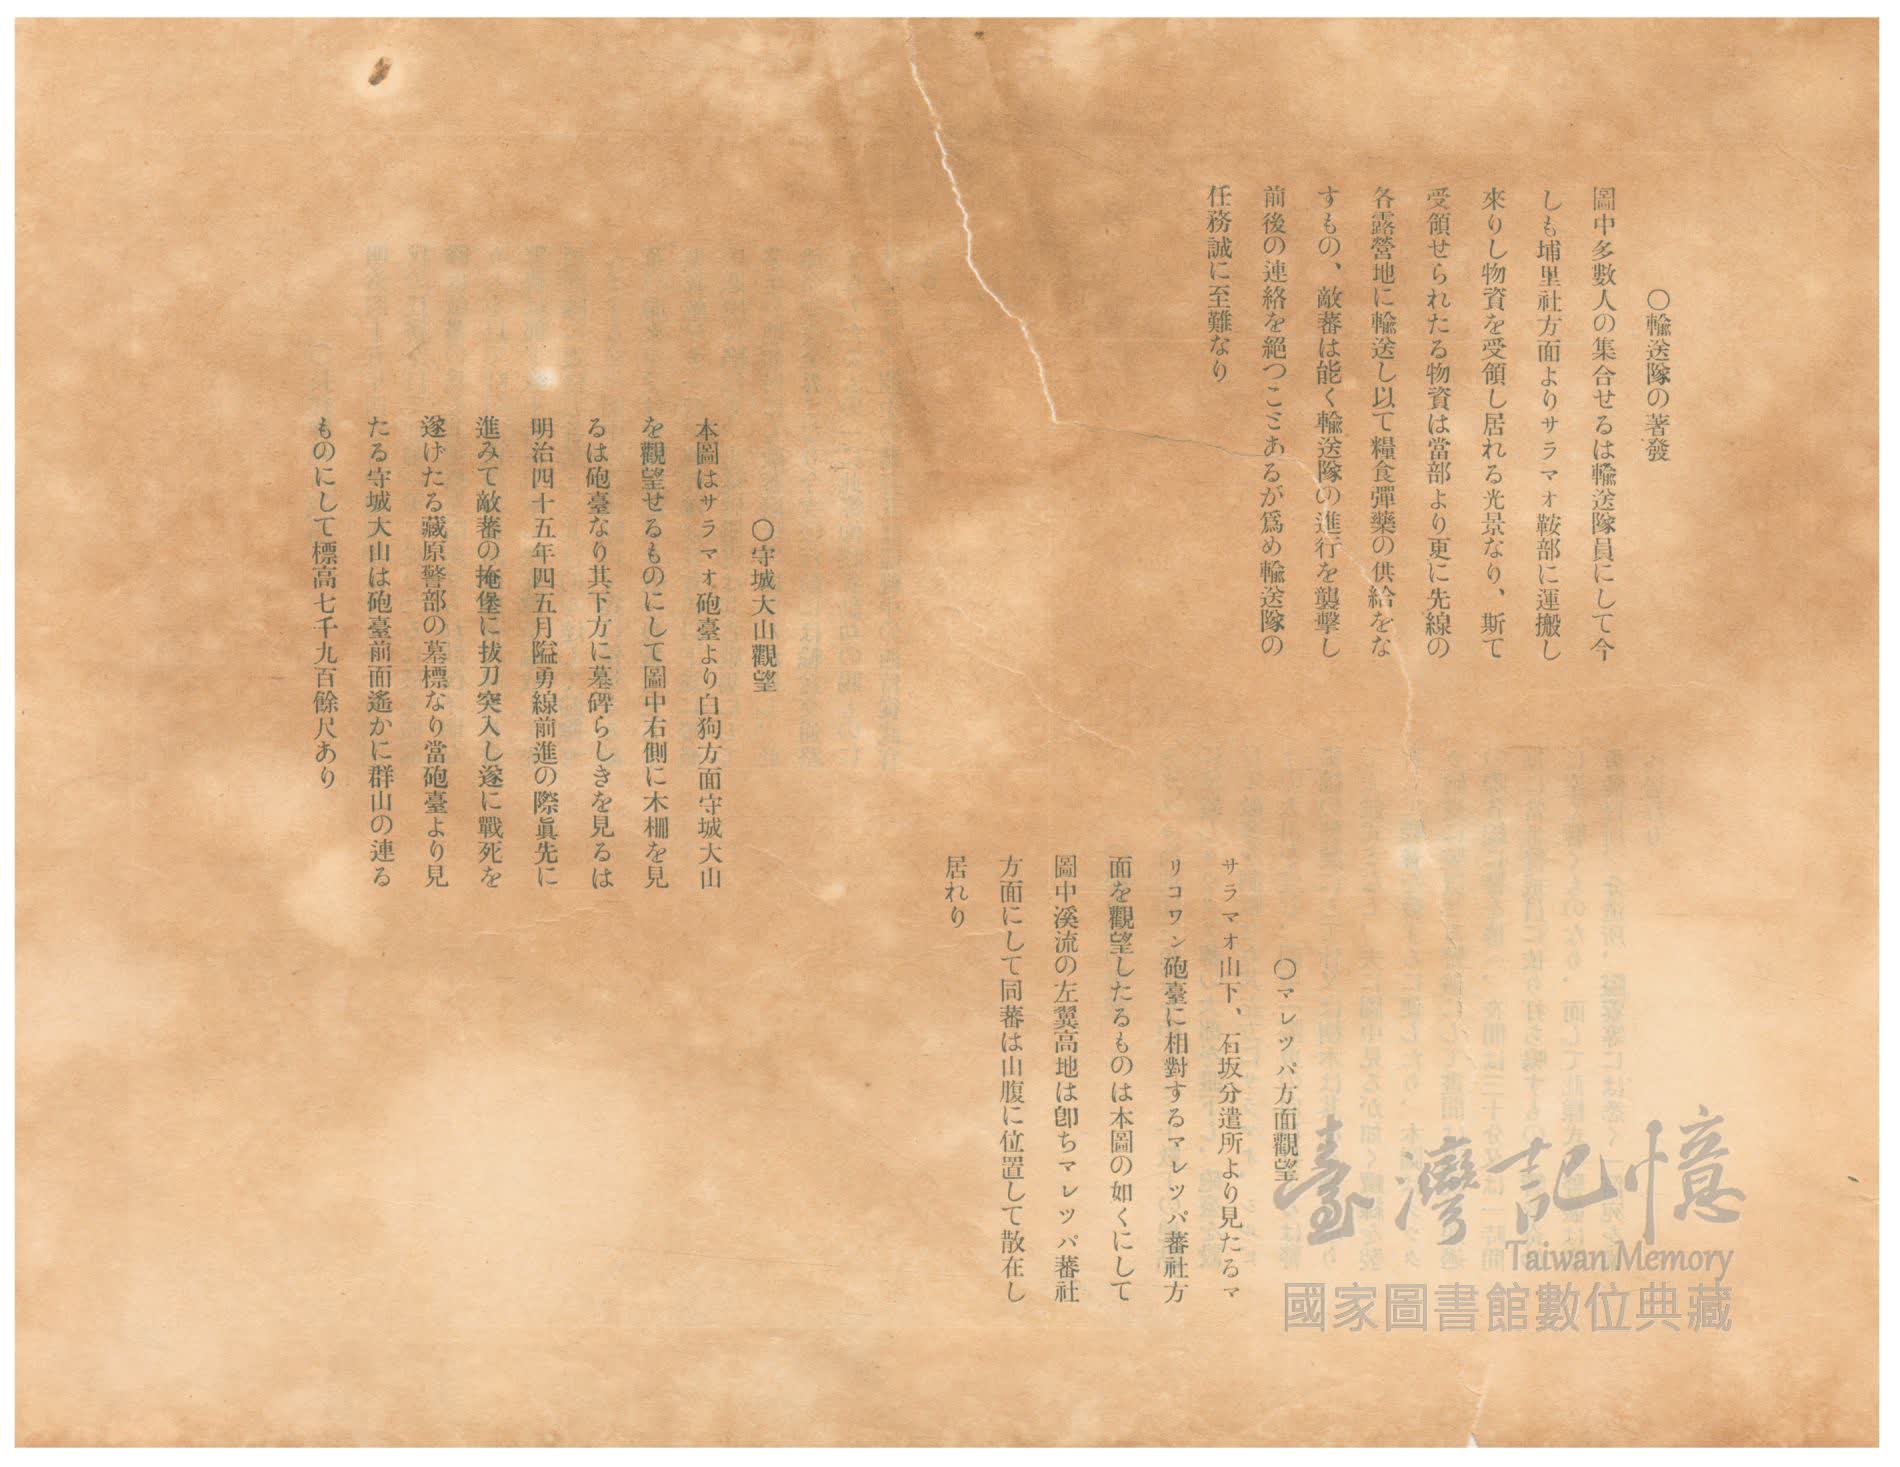 〇輸送隊の著發
圖中多數人の集合せるは輸送隊員にして今
しも埔里社方面よりサラマオ鞍部に運搬し
來りし物資を受領し居れる光景なり、斯て
受領せられたる物資は當部より更に先線の
各露營地に輸送し以て糧食彈藥の供給をな
すもの、敵蕃は能く輸送隊の進行を襲擊し
前後の連絡を絕つこミあるが爲め輸送隊の
任務誠に至難なり
〇マレツパ方面觀望
サラマオ山下、石坂分遣所より見たるマ
リコワン砲臺に相對するマレツパ蕃社方
面を觀望したるものは本圖の如くにして
圖中溪流の左翼高地は卽ちマレツパ蕃社
方面にして同蕃は山腹に位置して散在し
居れり
〇守城大山觀望
本圖はサラマオ砲臺より白狗方面守城大山
を觀望せるものにして圖中右側に木柵を見
るは砲臺なり其下方に墓碑らしきを見るは
明治四十五年四五月隘勇線前進の際眞先に
進みて敵蕃の掩堡に拔刀突入し遂に戰死を
遂げたる藏原警部の墓標なり當砲臺より見
たる守城大山は砲臺前面遙かに群山の連る
ものにして標高七千九百餘尺あり
臺灣記憶
Taiwan Memory
國家圖書館數位典藏